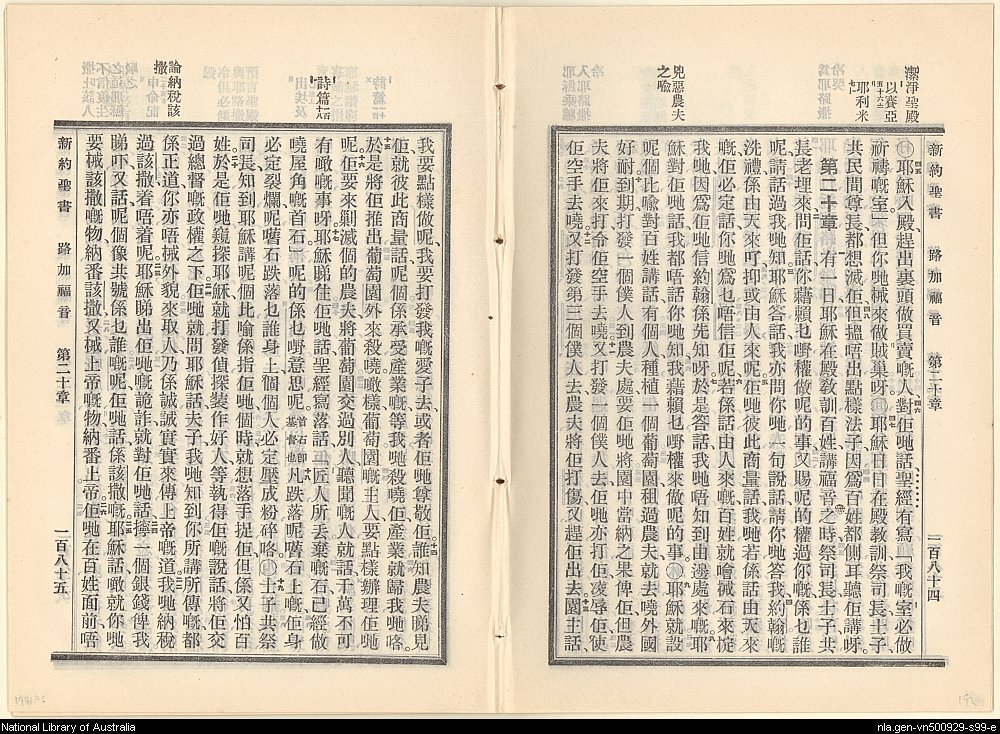 潔淨聖殿
以賽亞
五十六 七
耶利米
七
兇惡農夫
之喻
新約聖書 路加福音 第二十章 一百八十四
耶穌入殿趕出裏頭做買賣嘅人、對佢哋話、聖經有寫、「我嘅室必做
祈禱嘅室」但你哋械來做賊巢呀。耶穌日日在殿教訓祭司長士子
共民間尊長都想滅佢、但搵唔出點樣法子、因爲百姓都側耳聽佢講呀。
第二十章 有一日耶穌在殿教訓百姓、講福音之時、祭司長士子共
長老埋來問佢話、你藉賴乜嘢權做呢的事、又賜呢的權過你嘅係乜誰
呢、請話過我哋知、耶穌答話、我亦問你哋一句說話、請你哋答我、約翰嘅
洗禮係由天來吖、抑或由人來呢、佢哋彼此商量話、我哋若係話由天來
嘅、佢必定話、你哋爲乜唔信佢呢、若係話由人來嘅、百姓就噲械石來掟
我哋、因爲佢哋信約翰係先知呀、於是答話、我哋唔知到由邊處來嘅、耶
穌對佢哋話、我都唔話你哋知我藉賴乜嘢權來做呢的事。耶穌就設
呢個比喻對百姓講話、有個人種植一個葡萄園、租過農夫、就去嘵外國
好耐、到期打發一個僕人到農夫處、要佢哋將園中當納之果俾佢、但農
夫將佢來打、令佢空手去嘵、又打發一個僕人去、佢哋亦打佢凌辱佢、使
佢空手去嘵、又打發第三個僕人去、農夫將佢打傷、又趕佢出去、園主話、
詩篇 一百十八
出埃及
論納稅該
撒
申命記
我要點樣做呢、我要打發我嘅愛子去、或者佢哋尊敬佢、誰知農夫睇見
佢、就彼此商量話、呢個係承受產業嘅、等我哋殺嘵佢、產業就歸我哋咯、
於是將佢推出葡萄園外來殺嘵、噉樣葡萄園嘅主人要點樣辦理佢哋
呢、佢要來剿滅個的農夫、將葡萄園交過別人、聽聞嘅人就話、千萬不可
有噉嘅事呀、耶穌睇住佢哋話、聖經寫落話、「匠人所丟棄嘅石、已經做
嘵屋角嘅首石」呢的係乜嘢意思呢、首石卽基督也凡跌落呢嚿石上嘅、佢身
必定裂爛、呢嚿石跌落乜誰身上、個個人必定壓成粉碎咯。士子共祭
司長、知到耶穌講呢個比喻係指佢哋、個時就想落手捉佢、但係又怕百
姓、於是佢哋窺探耶穌、就打發偵探、裝作好人、等執得佢嘅說話、將佢交
過總督嘅政權之下、佢哋就問耶穌話、夫子、我哋知到你所講所傳嘅都
係正道、你亦唔械外貌來取人、乃係誠誠實實來傳上帝嘅道、我哋納稅
過該撒、着唔着呢、耶穌睇出佢哋嘅詭詐、就對佢哋話、擰一個銀錢俾我
睇吓、又話、呢個像共號係乜誰嘅呢、佢哋話、係該撒嘅、耶穌話、噉就你哋
要械該撒嘅物納番該撒、又械上帝嘅物納番上帝。佢哋在百姓面前唔
新約聖書 路加福音 第二十章 一百八十五
National Library of Australia
nla.gen-vn500929-s99-e